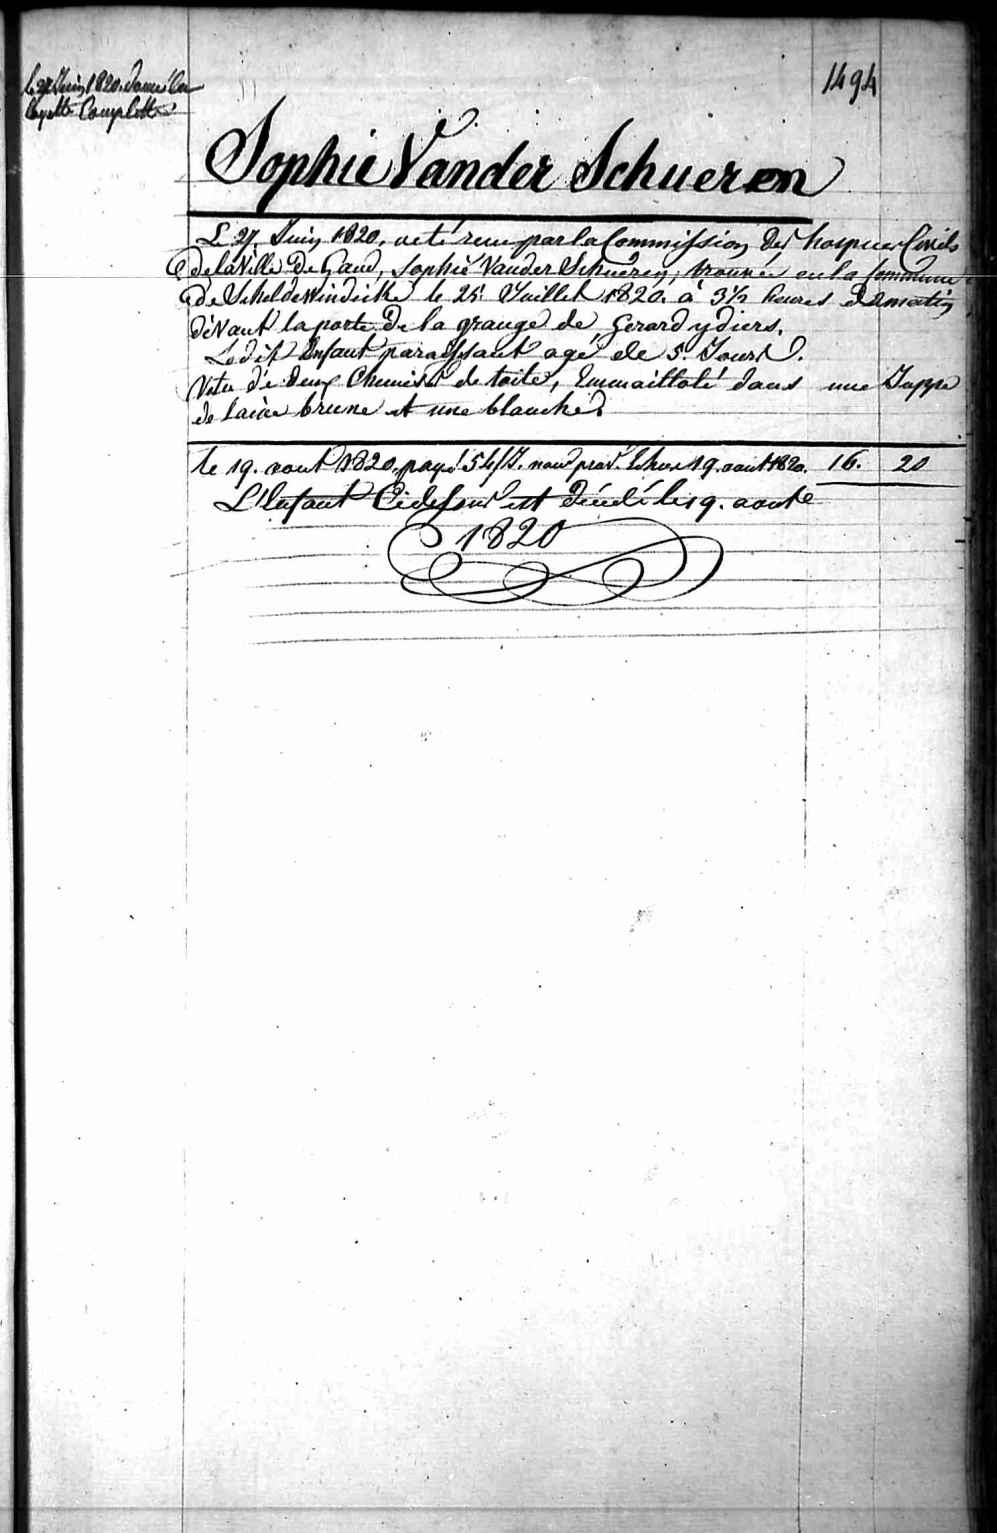 1494
le 27 Juin 1820. donné la
layette Complette
Sophie Vander Schueren
Le 27. Juin 1820, a eté recu par la Commission des hospices Civils
de la Ville de Gand, Sophie Vander Schueren, trouvée en la Commune
de Scheldewindeke le 25 Juillet 1820. à 3½ heures du matin
dévant la porte de la grange de Gerard ydiers.
Ledit Enfant paraissant agé de 5. Jours.
Vetu de deux Chemises de toile, Emmailloté dans une Juppe
de laine brune et une blanche
le 19. aout 1820, payé 54/J. 19. aout 1820. 16. 20
L'Enfant Cidessus est décédé le 19. aout
1820